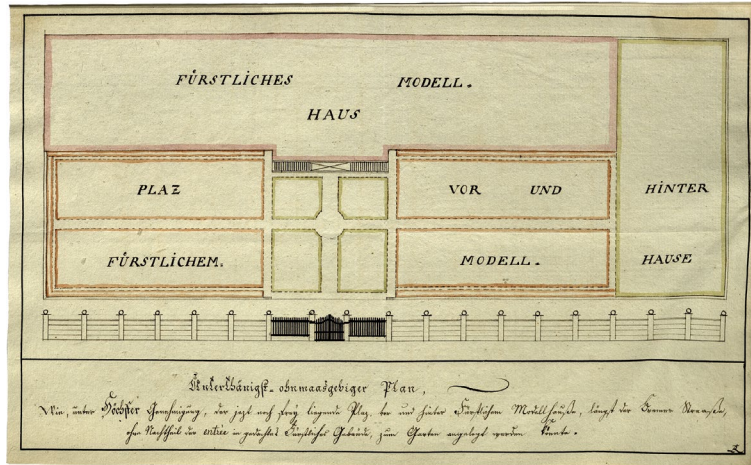 FÜRSTLICHES MODELL.
HAUS
PLAZ VOR UND HINTER
FÜRSTLICHEM. MODELL. HAUSE
Unterthänigst-ohnmaasgebiger Plan,
Wie, unter Höchster Genehmigung, der jezt noch frey liegende Plaz vor und hinter Fürstlichem Modellhauße, längst der Straße,
ohne Nachtheil der entrée in gedachtes Fürstliches Gebäude, zum Garten angelegt werden könnte.